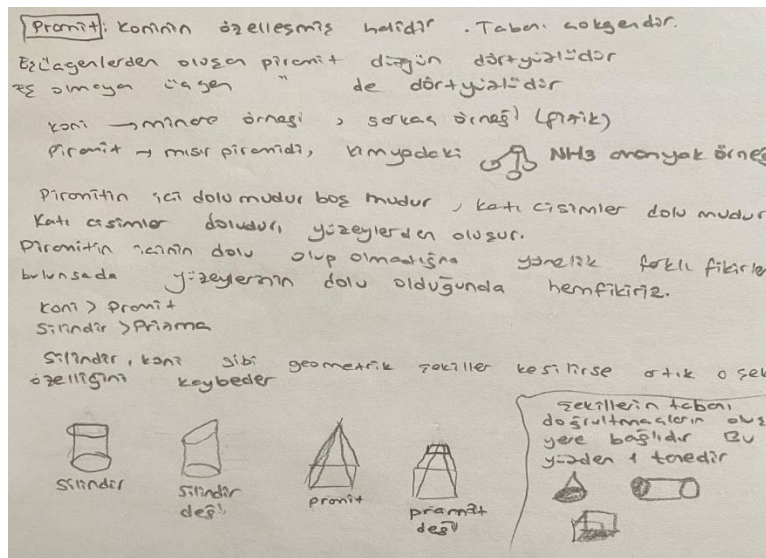 Pramit: Koninin özelleşmiş halidir. Tabanı çokgendir.
Eş üçgenlerden oluşan piramit düzgün dörtyüzlüdür
Eş olmayan üçgen " de dörtyüzlüdür
Koni → minare örneği, sarkaç örneği (fizik)
Piramit → mısır piramidi, kimyadaki NH3 amonyak örne
Piramitin içi dolu mudur boş mudur, katı cisimler dolu mudur
Katı cisimler doludur, yüzeylerden oluşur.
Piramitin içinin dolu olup olmadığına yönelik farklı fikirle
bulunsada yüzeylerinin dolu olduğunda hemfikiriz.
Koni > Pramit
Silindir > Prizma
Silindir, koni gibi geometrik şekiller kesilirse artık o şek
özelliğini kaybeder
Silindir
Silindir
değil
pramit
pramit
değil
Şekillerin tabanı
doğrultmaçların oluş
yere bağlıdır Bu
yüzden 1 tanedir